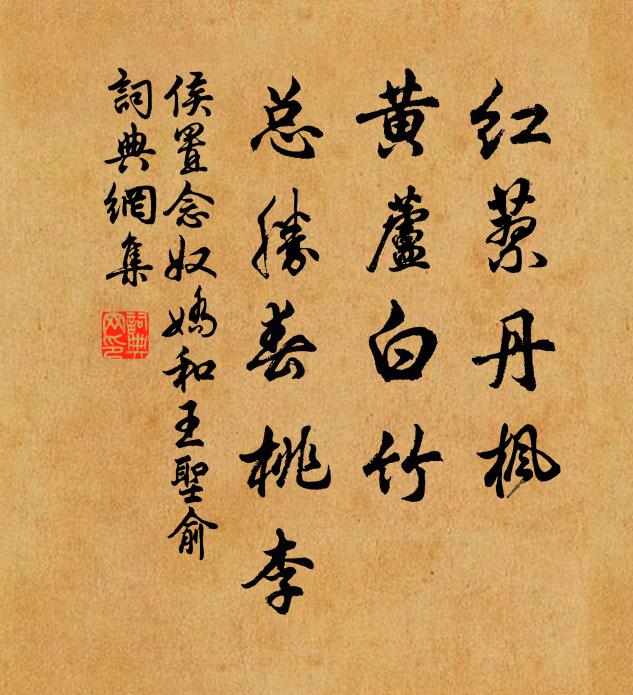 红蓼丹枫
黄蘆白竹
总勝春桃李
侯置念奴嬌和王聖俞
詞典網集
詞典网印